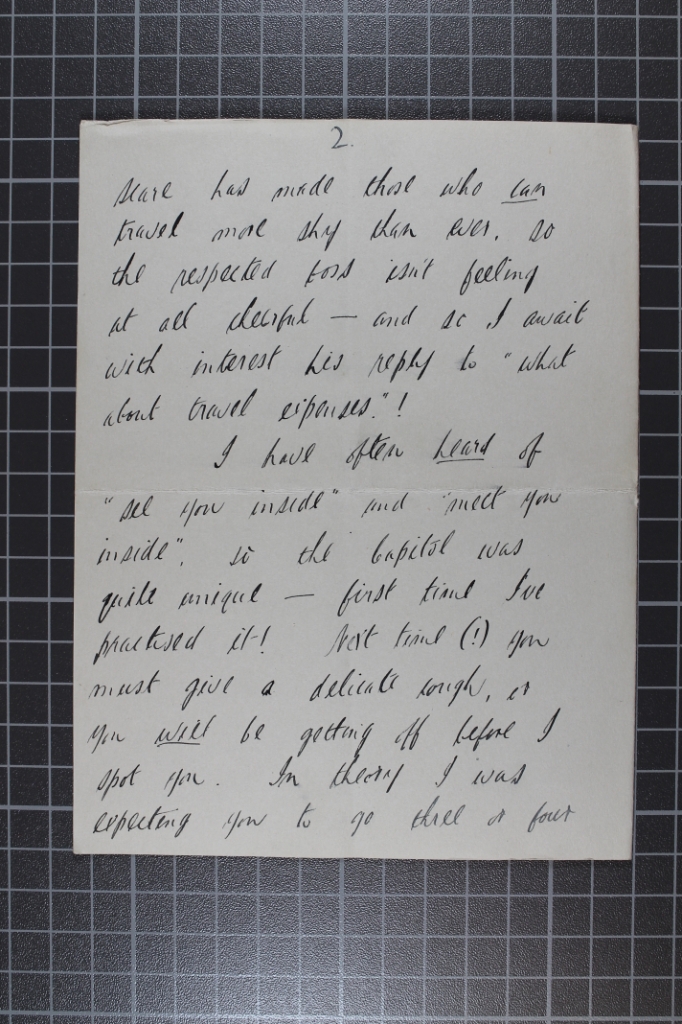 2.
scare has made those who can
travel more shy than ever, so
the respected boss isn't feeling
at all cheerful — and so I await
with interest his reply to "what
about travel expenses."!
I have often heard of
"see you inside" and "meet you
inside", so the Capitol was
quite unique — first time I've
practised it! Next time (!) you
must give a delicate cough, or
you will be getting off before I
spot you. In theory I was
expecting you to go three or four